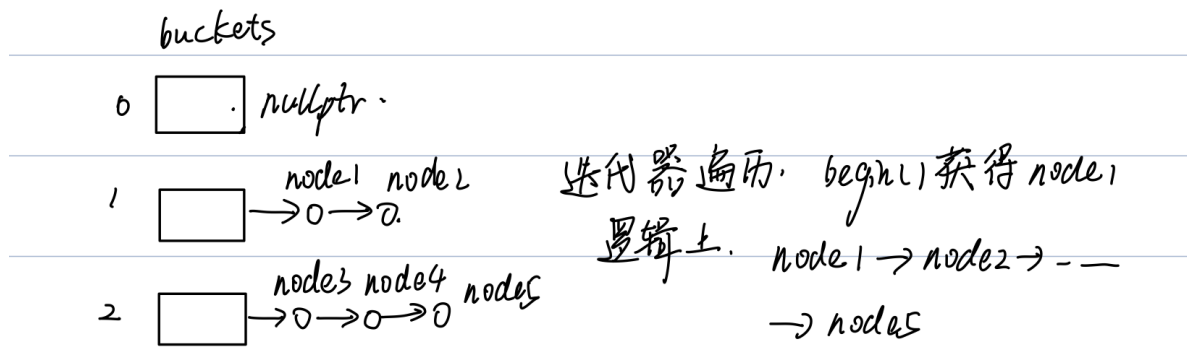 buckets
0 nullptr.
1 node1 node2
迭代器遍历. begin()获得node1
逻辑上. node1→node2→---
2 node3 node4 node5
→node5